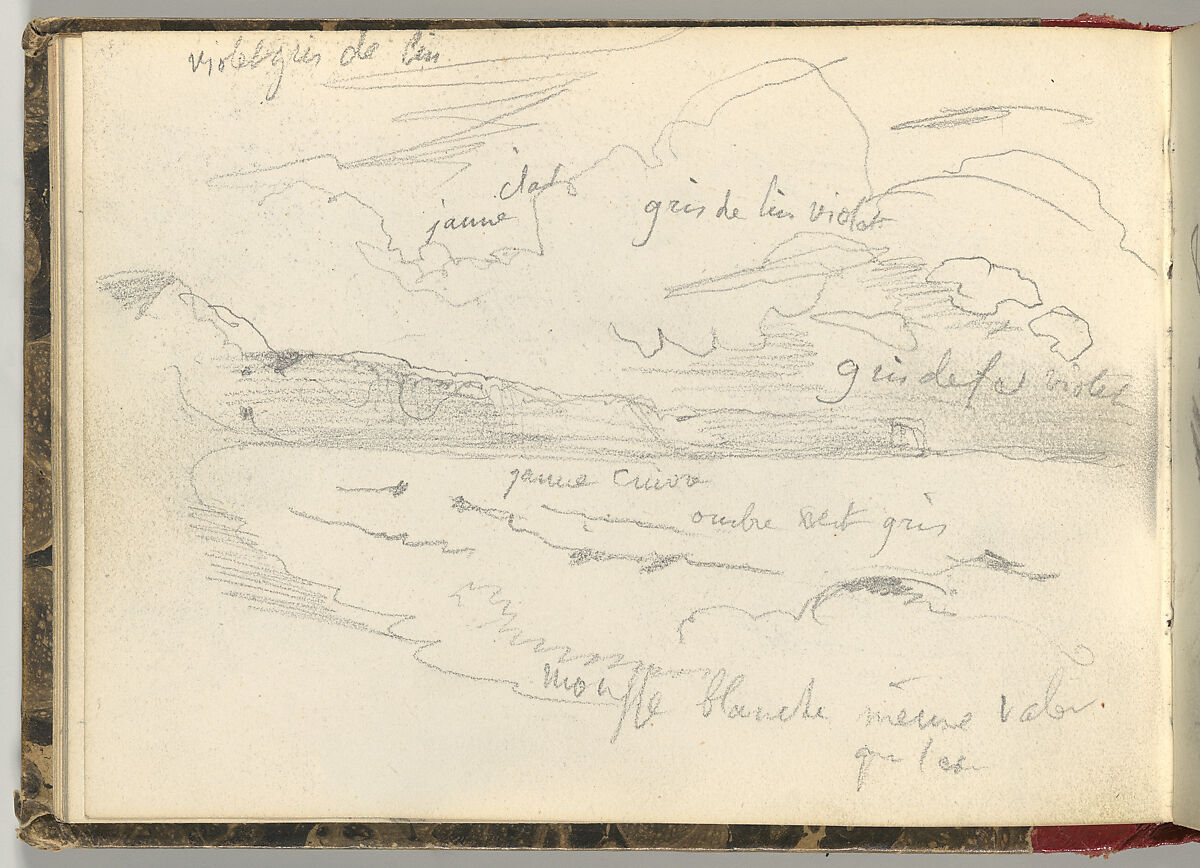 violet gris de lin
clair
jaune
gris de lin violet
gris de fer violet
jaune cuivre
ombre vert gris
mousse blanche même valeur
que